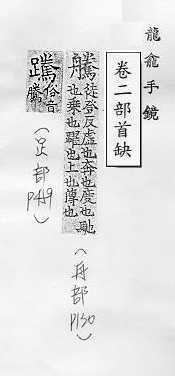 龍龕手鏡
卷二部首缺
騰徒登反虛也奔也度也馳
也乘也躍也上也傳也
(舟部 P130)
俗音
騰
(足部